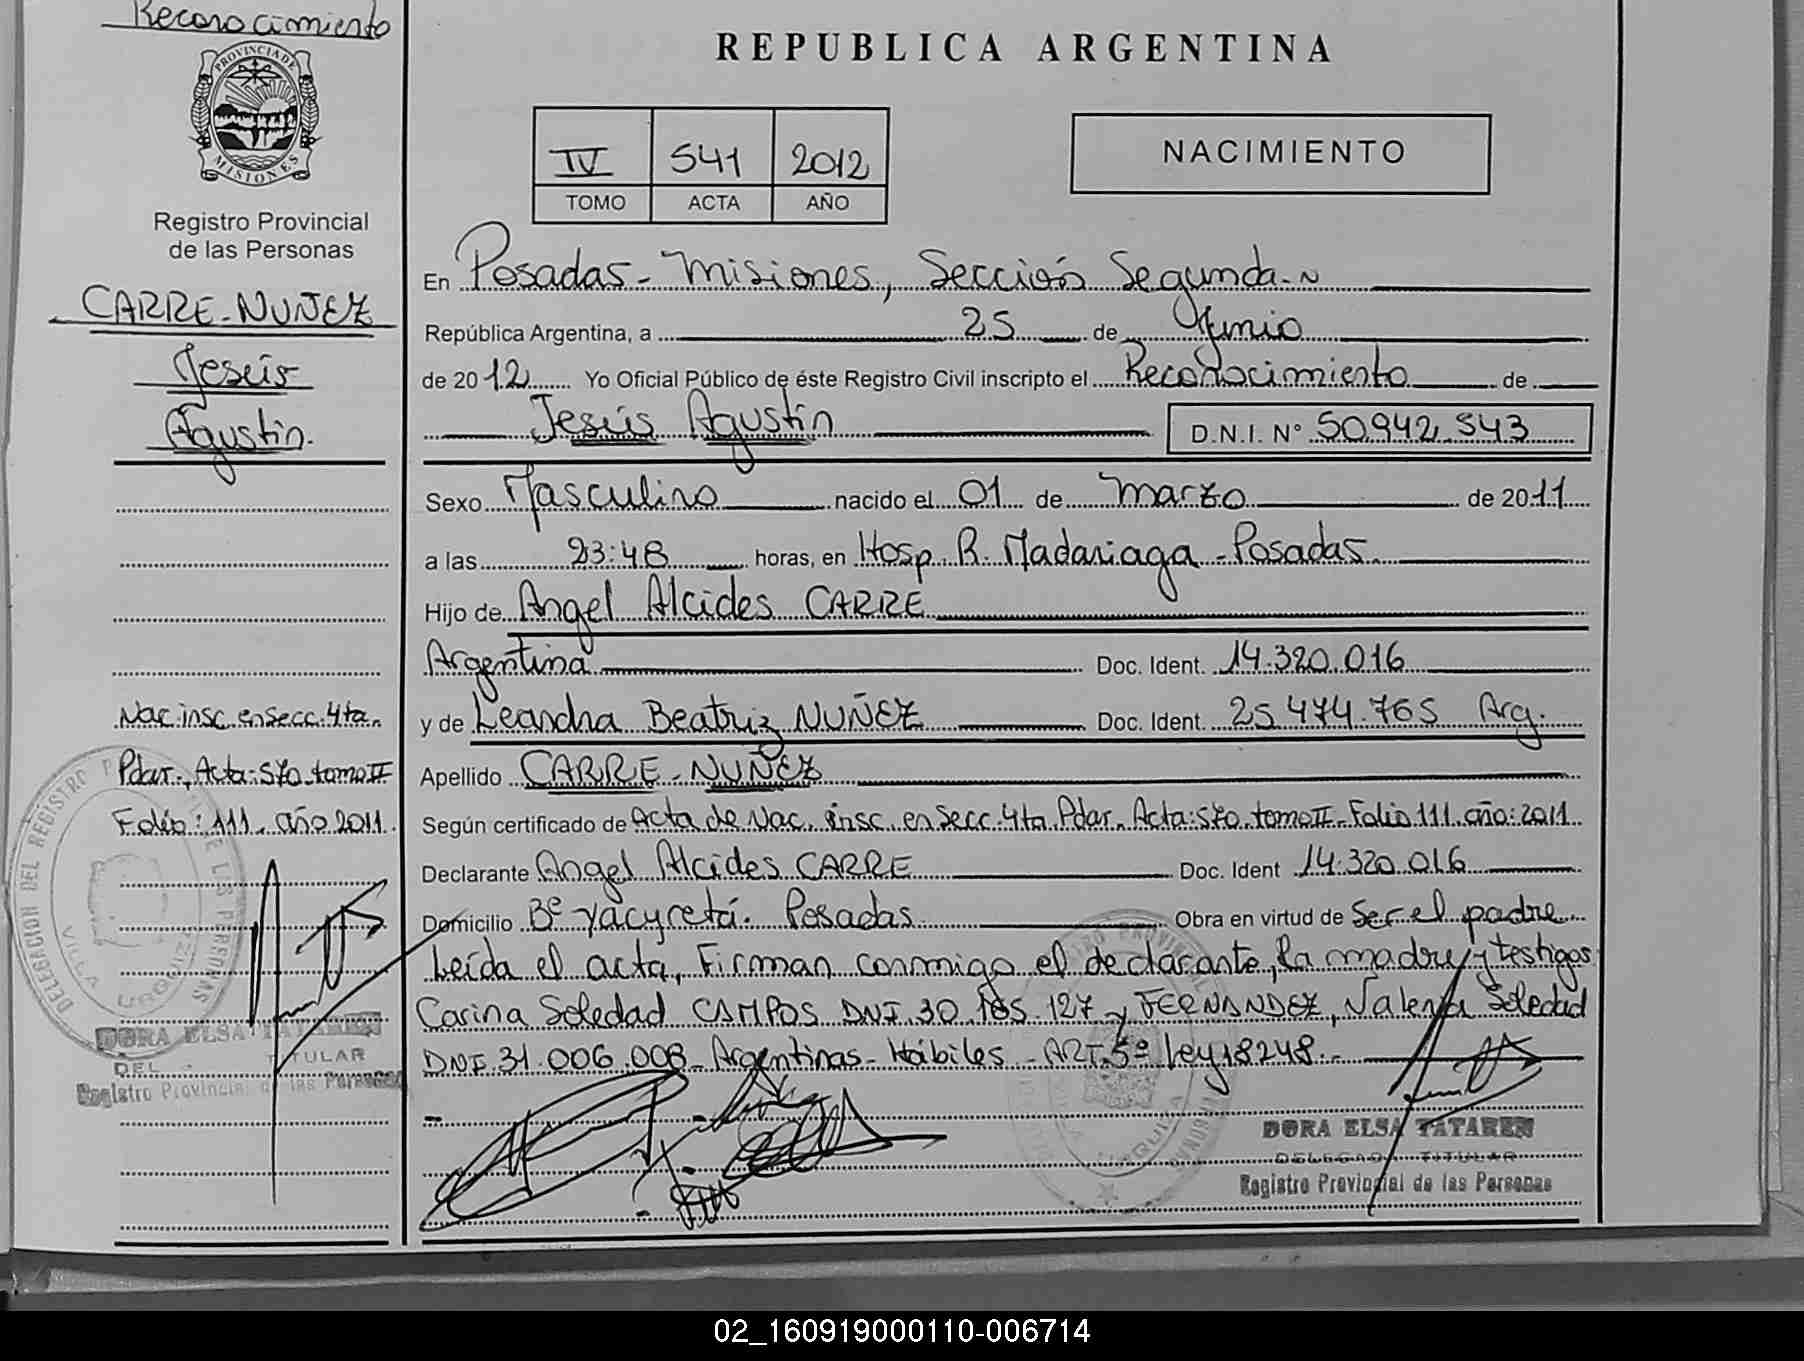 Reconocimiento
PROVINCIA DE
MISIONES
Registro Provincial
de las Personas
CARRE-NUÑEZ
Jesús
Agustín.
Nac. insc. en Secc. 4ta.
Pdas., Acta: 570 tomo II
Folio: 111. año 2011.
DELEGACION DEL REGISTRO
DE LAS PERSONAS
VILLA URQUIZA
DORA ELSA TATAREN
TITULAR
DEL
Registro Provincial de las Personas
REPUBLICA ARGENTINA
IV 541 2012
TOMO ACTA AÑO
NACIMIENTO
En Posadas - Misiones, Sección Segunda.
República Argentina, a 25 de Junio
de 2012 Yo Oficial Público de éste Registro Civil inscripto el Reconocimiento de
Jesús Agustín D.N.I. N° 50.942.543
Sexo Masculino nacido el 01 de Marzo de 2011
a las 23:48 horas, en Hosp. R. Madariaga - Posadas
Hijo de Angel Alcides CARRE
Argentina Doc. Ident. 14.320.016
y de Leandra Beatriz NUÑEZ Doc. Ident. 25.474.765 Arg.
Apellido CARRE - NUÑEZ
Según certificado de Acta de Nac. insc. en Secc. 4ta Pdas. Acta: 570 tomo II - Folio 111. año: 2011
Declarante Angel Alcides CARRE Doc. Ident 14.320.016
Domicilio B° Yacyretá. Posadas Obra en virtud de Ser el padre
Leída el acta, Firman conmigo el declarante, la madre y testigos
Carina Soledad CAMPOS DNI. 30.165.127 y FERNANDEZ, Valeria Soledad
DNI. 31.006.008 - Argentinas - Hábiles - ART. 5º Ley 18248.-
DORA ELSA TATAREN
DELEGADA TITULAR
Registro Provincial de las Personas
URQUIZA
02_160919000110-006714